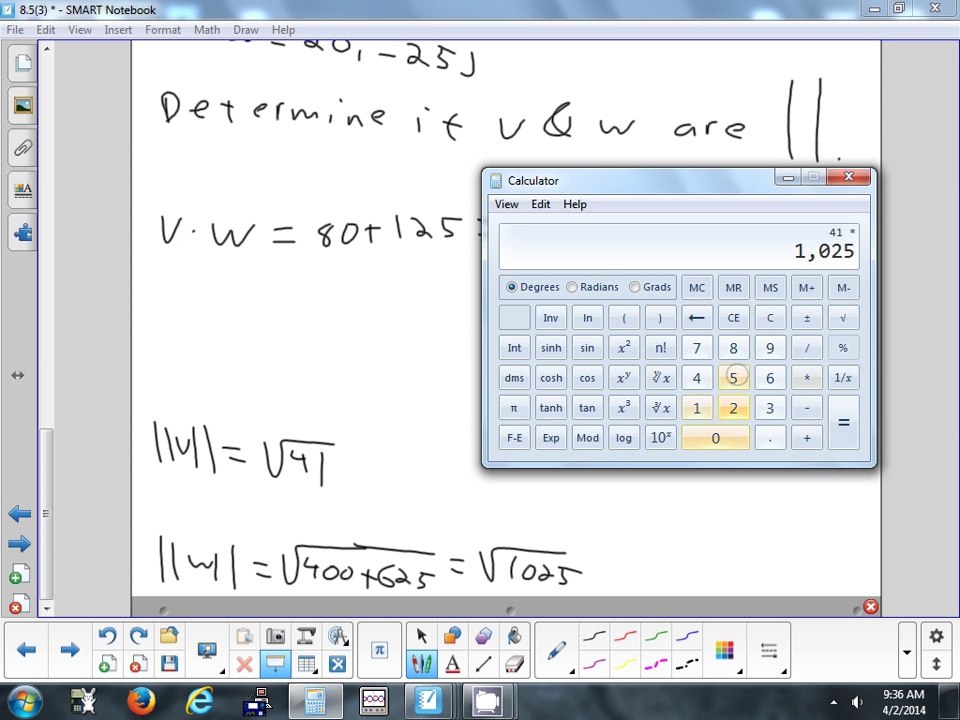 8.5(3) * - SMART Notebook
File Edit View Insert Format Math Draw Help
= 20, -25]
Determine if v & w are ||.
V · W = 80+125 =
||v|| = √41
||w|| = √400+625 = √1025
Calculator
View Edit Help
41 *
1,025
Degrees Radians Grads MC MR MS M+ M-
Inv ln ( ) ← CE C ± √
Int sinh sin x² n! 7 8 9 / %
dms cosh cos xʸ ʸ√x 4 5 6 * 1/x
π tanh tan x³ ³√x 1 2 3 - =
F-E Exp Mod log 10ˣ 0 . +
π
A
9:36 AM
4/2/2014